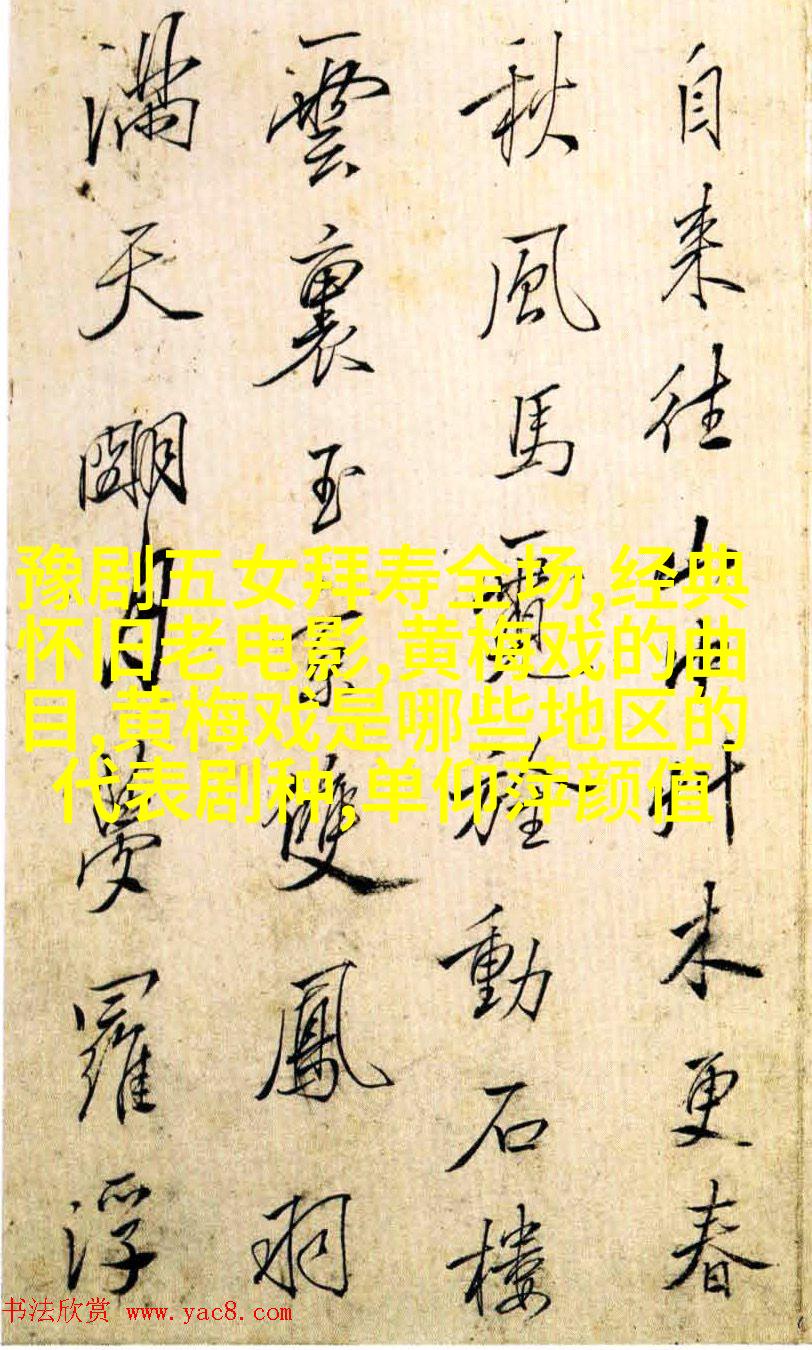 自来往山中艸木更春
秋風馬動石樓
雲裏玉京雙鳳羽
滿天月夢羅浮
豫剧五女拜寿全场,经典
怀旧老电影,黄梅戏的曲
目,黄梅戏是哪些地区的
代表剧种,单仰萍颜值
书法欣赏 www.yac8.com